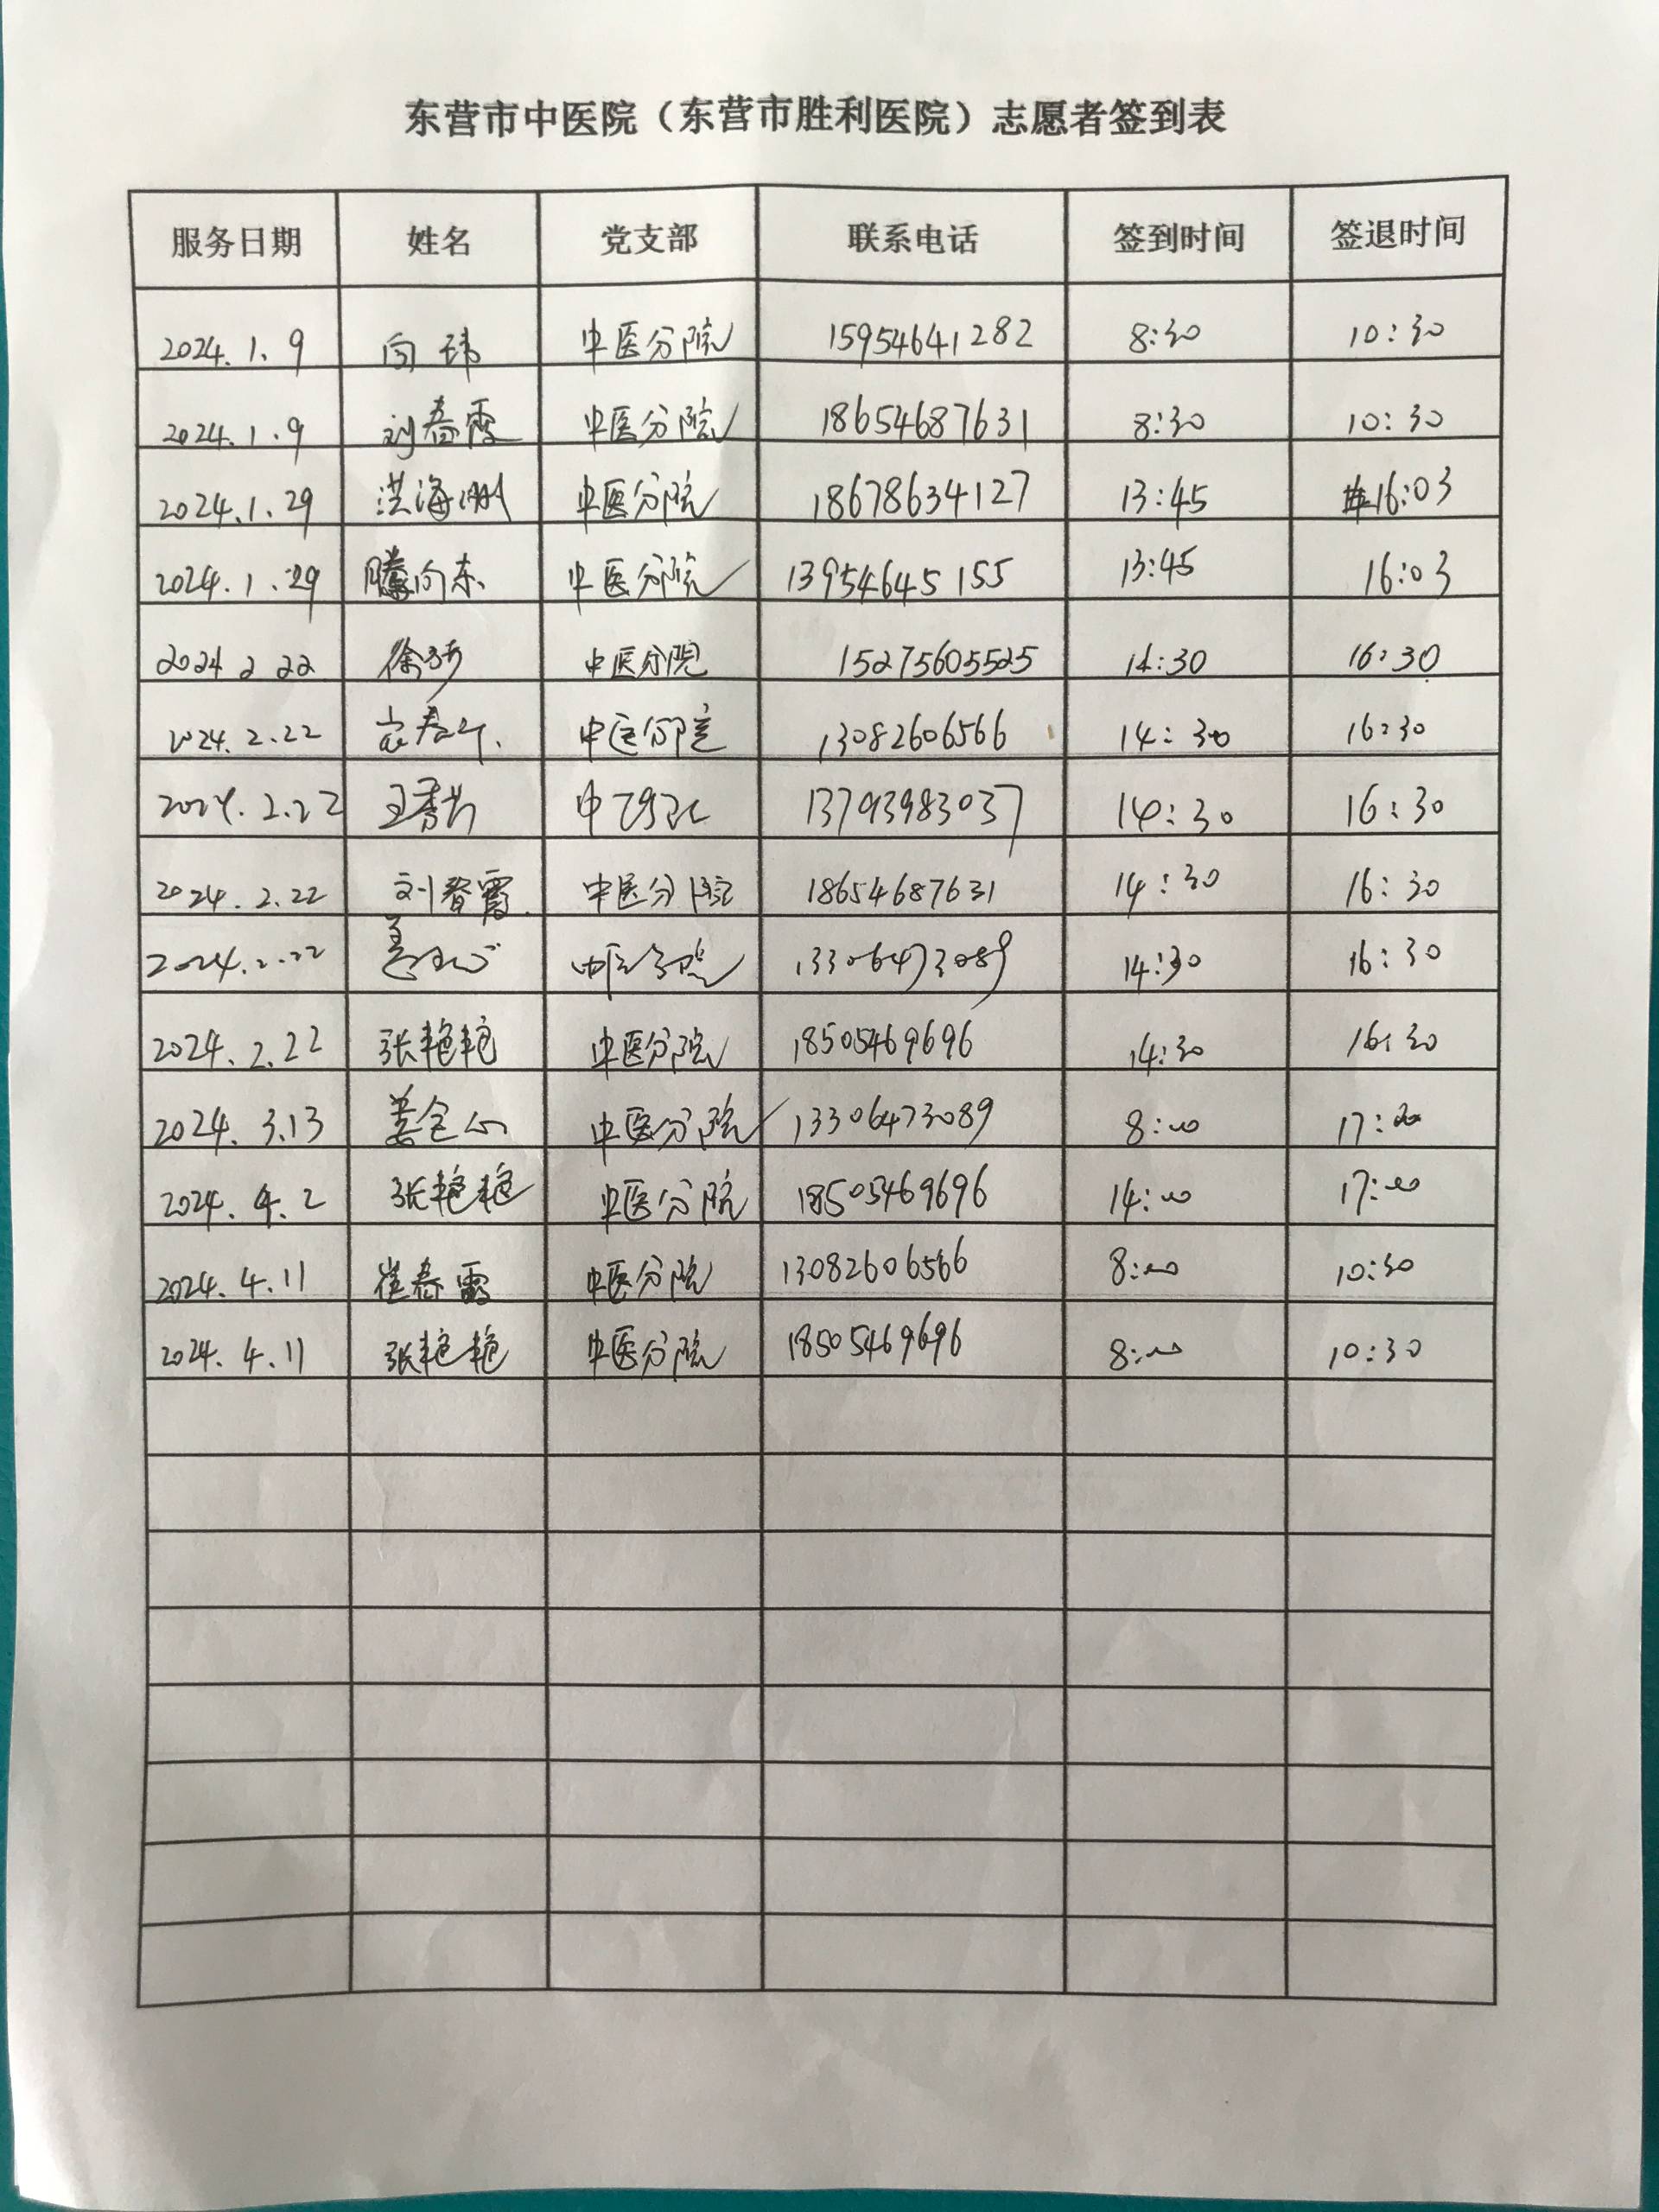 东营市中医院（东营市胜利医院）志愿者签到表
服务日期 姓名 党支部 联系电话 签到时间 签退时间
2024.1.9 向玮 中医分院 15954641282 8:30 10:30
2024.1.9 刘春霞 中医分院 18654687631 8:30 10:30
2024.1.29 洪海洲 中医分院 18678634127 13:45 16:03
2024.1.29 滕向东 中医分院 13954645155 13:45 16:03
2024 2 22 徐 中医分院 15275605525 14:30 16:30
2024.2.22 中医分院 13082606566 14:30 16:30
2024.2.22 王秀 中 13793983037 14:30 16:30
2024.2.22 刘春霞 中医分院 18654687631 14:30 16:30
2024.2.22 姜 中医分院 13306473089 14:30 16:30
2024.2.22 张艳艳 中医分院 18505469696 14:30 16:30
2024.3.13 姜 中医分院 13306473089 8:00 17:00
2024.4.2 张艳艳 中医分院 18505469696 14:00 17:00
2024.4.11 崔春霞 中医分院 13082606566 8:00 10:30
2024.4.11 张艳艳 中医分院 18505469696 8:00 10:30